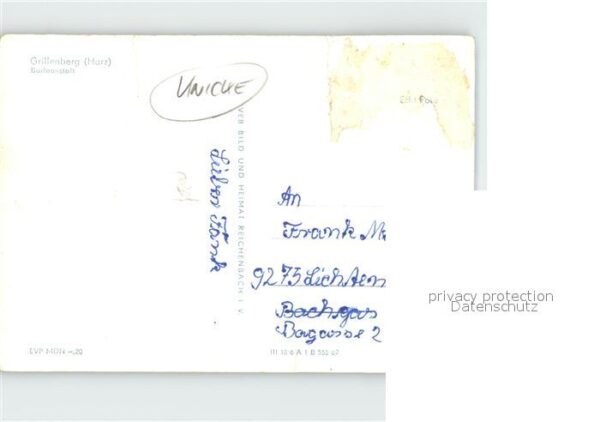 Grillenberg (Harz)
Badeanstalt
UNICKE
VEB BILD UND HEIMAT REICHENBACH I. V.
Lieber Frank
An
Frank
9273 Lichten
Bachgas
Bagasse 2
EVP MDN -,20
III 18 6 A 1 B 555 67
privacy protection
Datenschutz